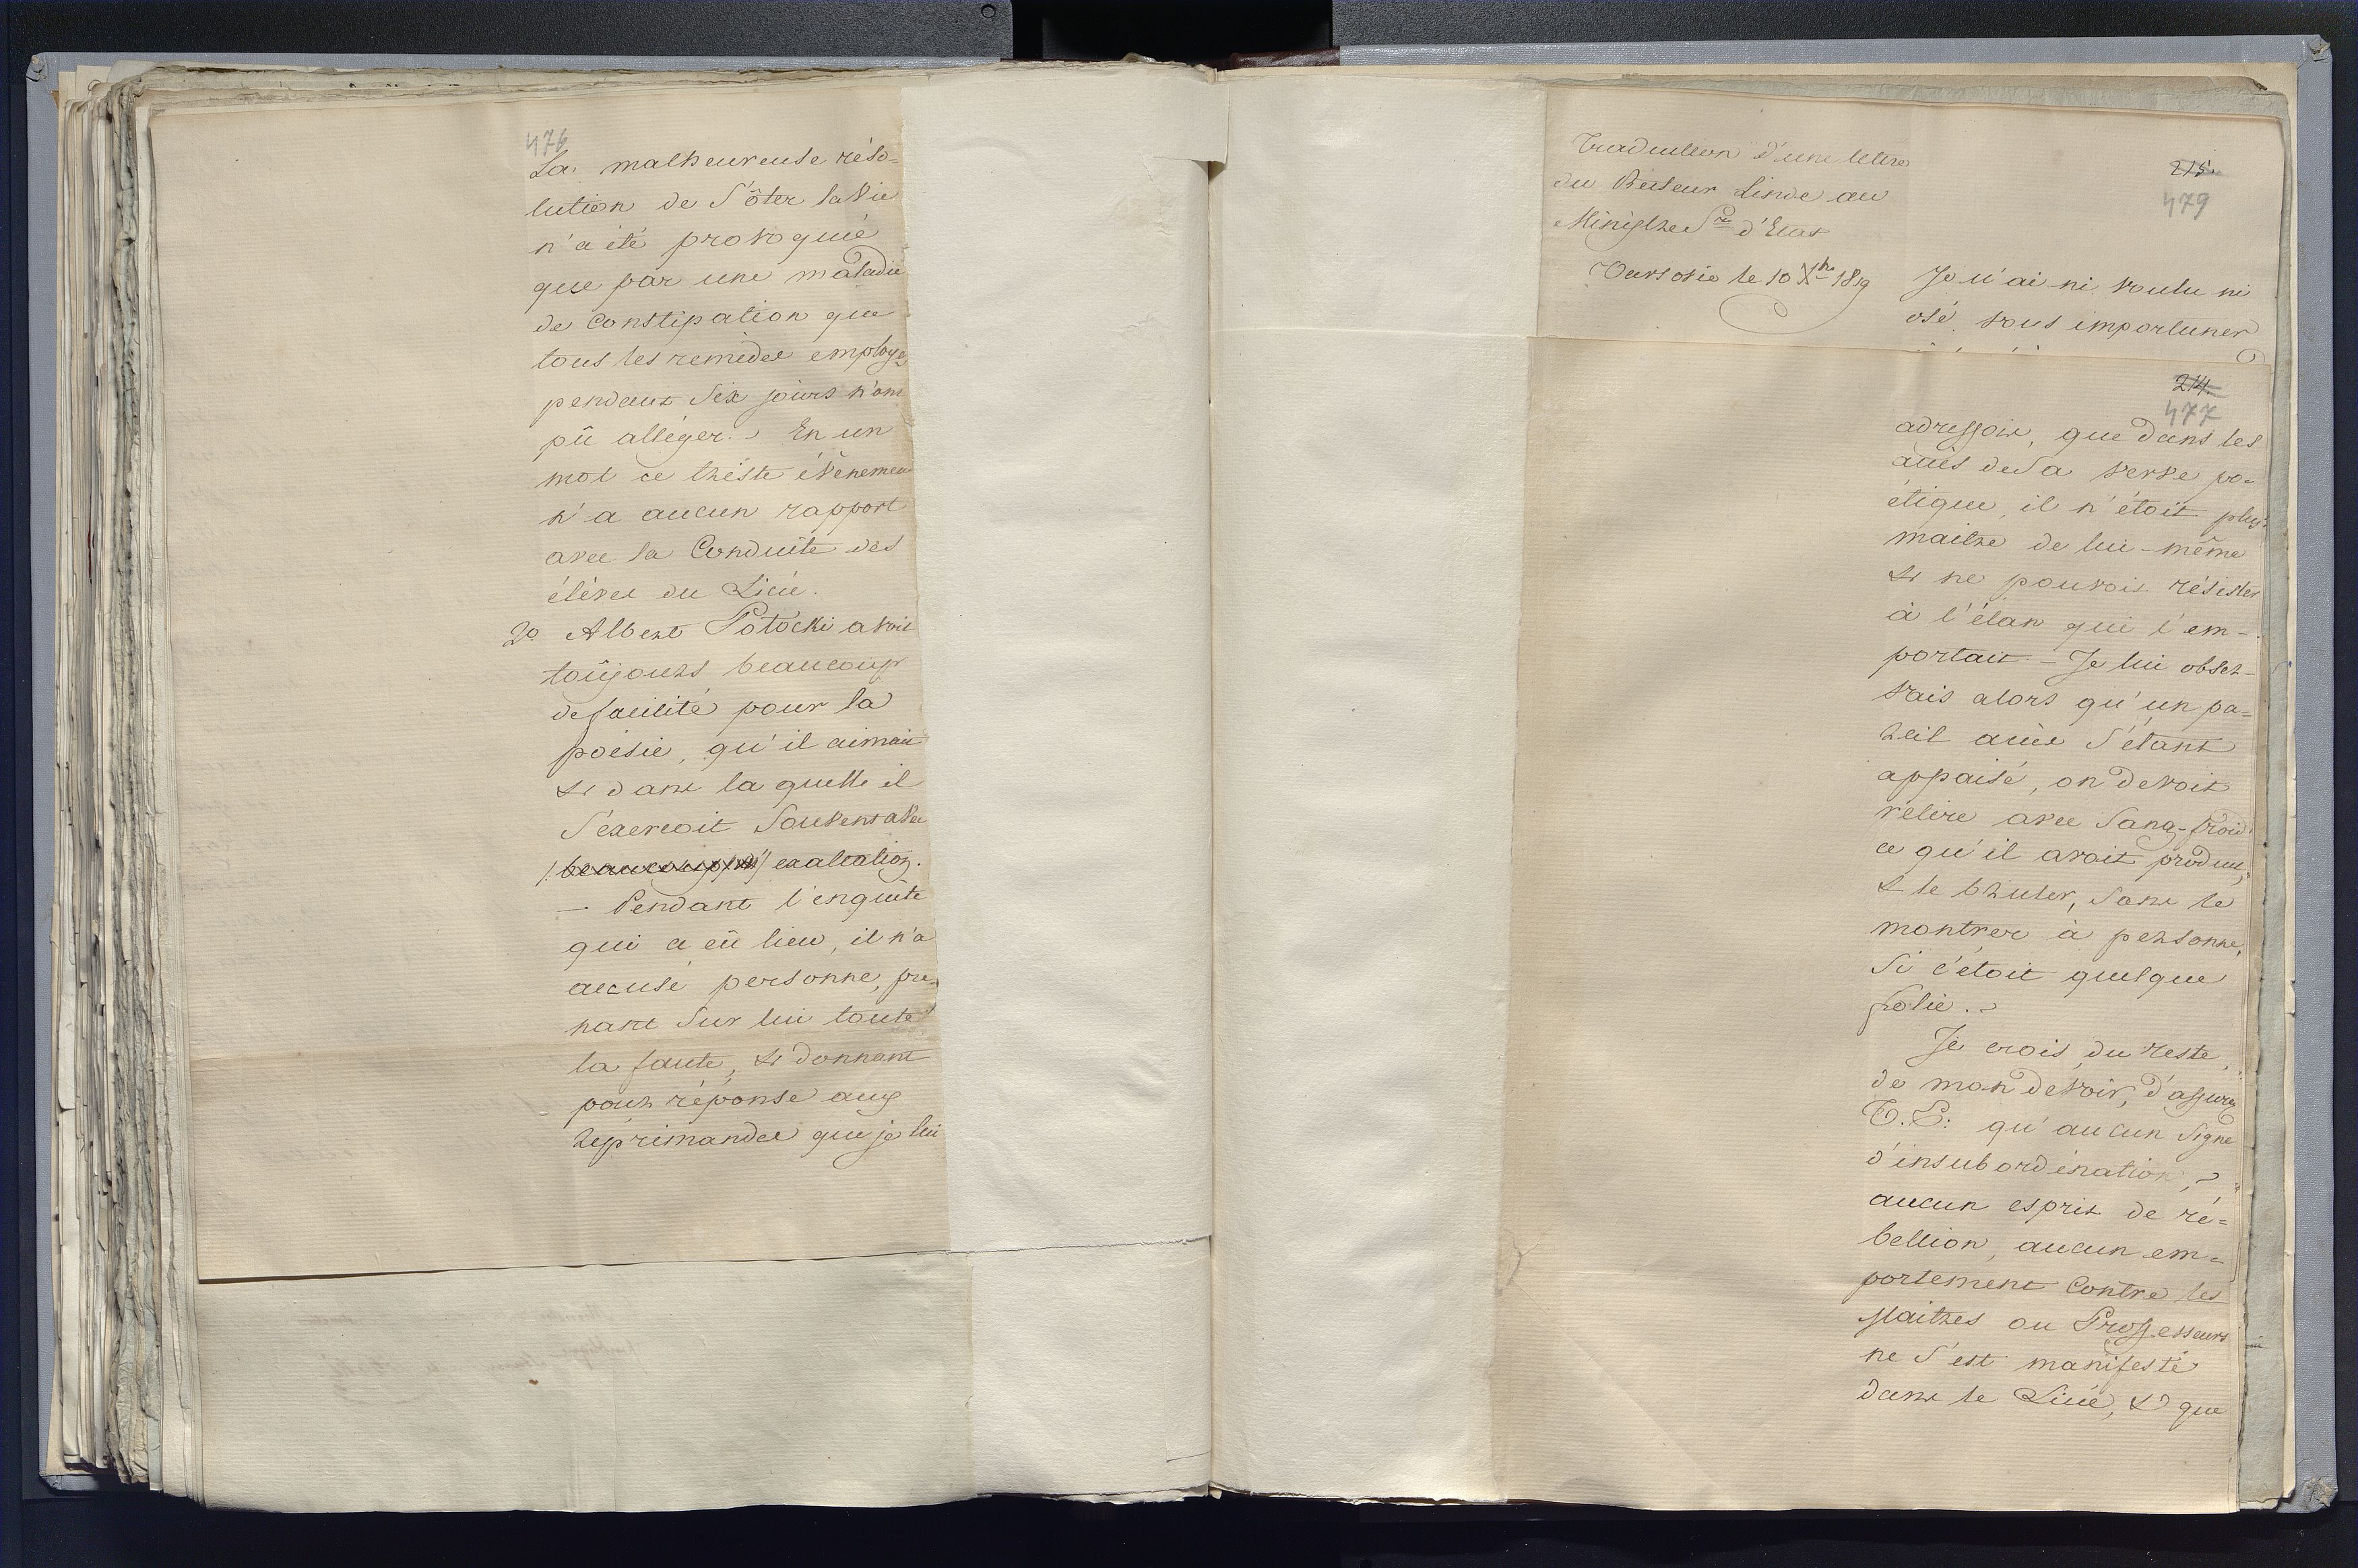 476
La malheureuse réso=
lution de S'ôter la Vie
n'a été provoquée
que par une maladie
de Constipation que
tous les remèdes employe
pendant Six jours n'ont
pû alléger. En un
mot ce triste évènement
n'a aucun rapport
avec la Conduite des
élèves du Licée.
2o Albert Potocki avoit
toûjours beaucoup
de facilité pour la
poésie, qu'il aimait
& dans la quelle il
S'exerçoit Souvent avec
beaucoup exaltation.
— Pendant l'enquête
qui a eû lieu, il n'a
accusé personne, pre-
nant Sur lui toute
la faute, & donnant
pour réponse aux
reprimandes que je lui
Traduction d'une lettre
du Recteur Linde au
Ministre Sre d'Etat
Varsovie le 10 Xbre 1819
215.
479
Je n'ai ni voulu ni
osé vous importuner
214.
477
adressois, que dans les
accès de Sa verve po=
étique, il n'étoit plus
maitre de lui-même
& ne pouvoit résister
à l'élan qui l'em-
portait. — Je lui obser-
vais alors qu'un pa=
reil accès S'étant
appaisé, on devoit
relire avec Sang-froid
ce qu'il avait produit,
& le bruler, Sans le
montrer à personne,
Si c'étoit quelque
folie.
Je crois, du reste,
de mon devoir, d'assurer
V.E: qu'aucun Signe
d'insubordination,
aucun esprit de ré=
bellion, aucun em=
portement Contre les
Maitres ou Professeurs
ne S'est manifesté
dans le Licée, & que